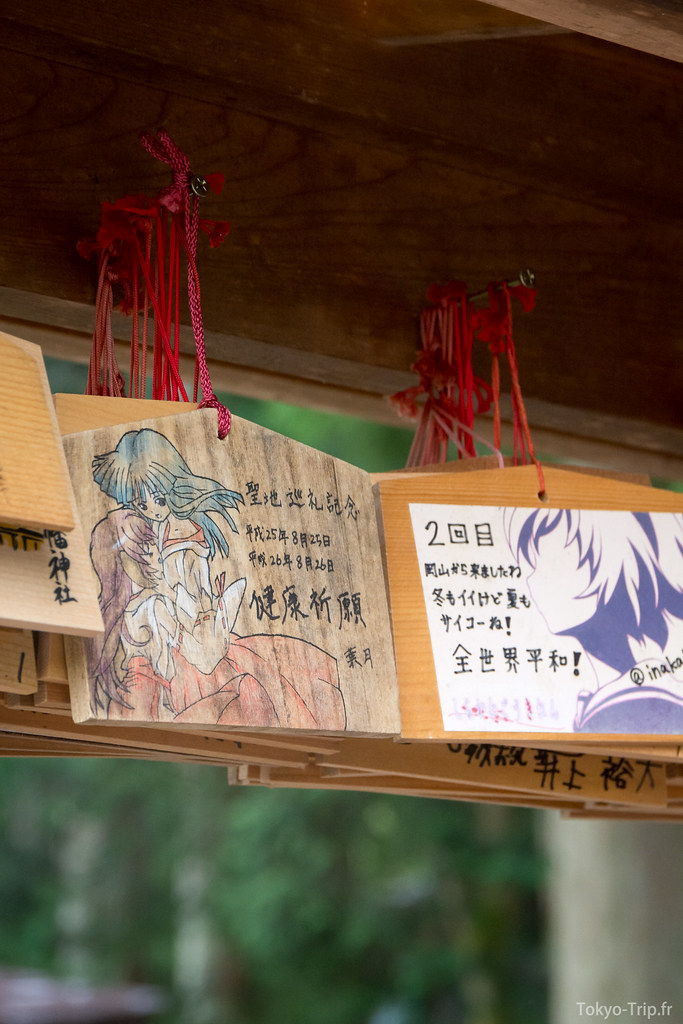 幡神社
聖地巡礼記念
平成25年8月25日
平成26年8月26日
健康祈願
葉月
2回目
岡山から来ましたね
冬もイイけど夏も
サイコーね!
全世界平和!
@inaka
井上 裕大
Tokyo-Trip.fr